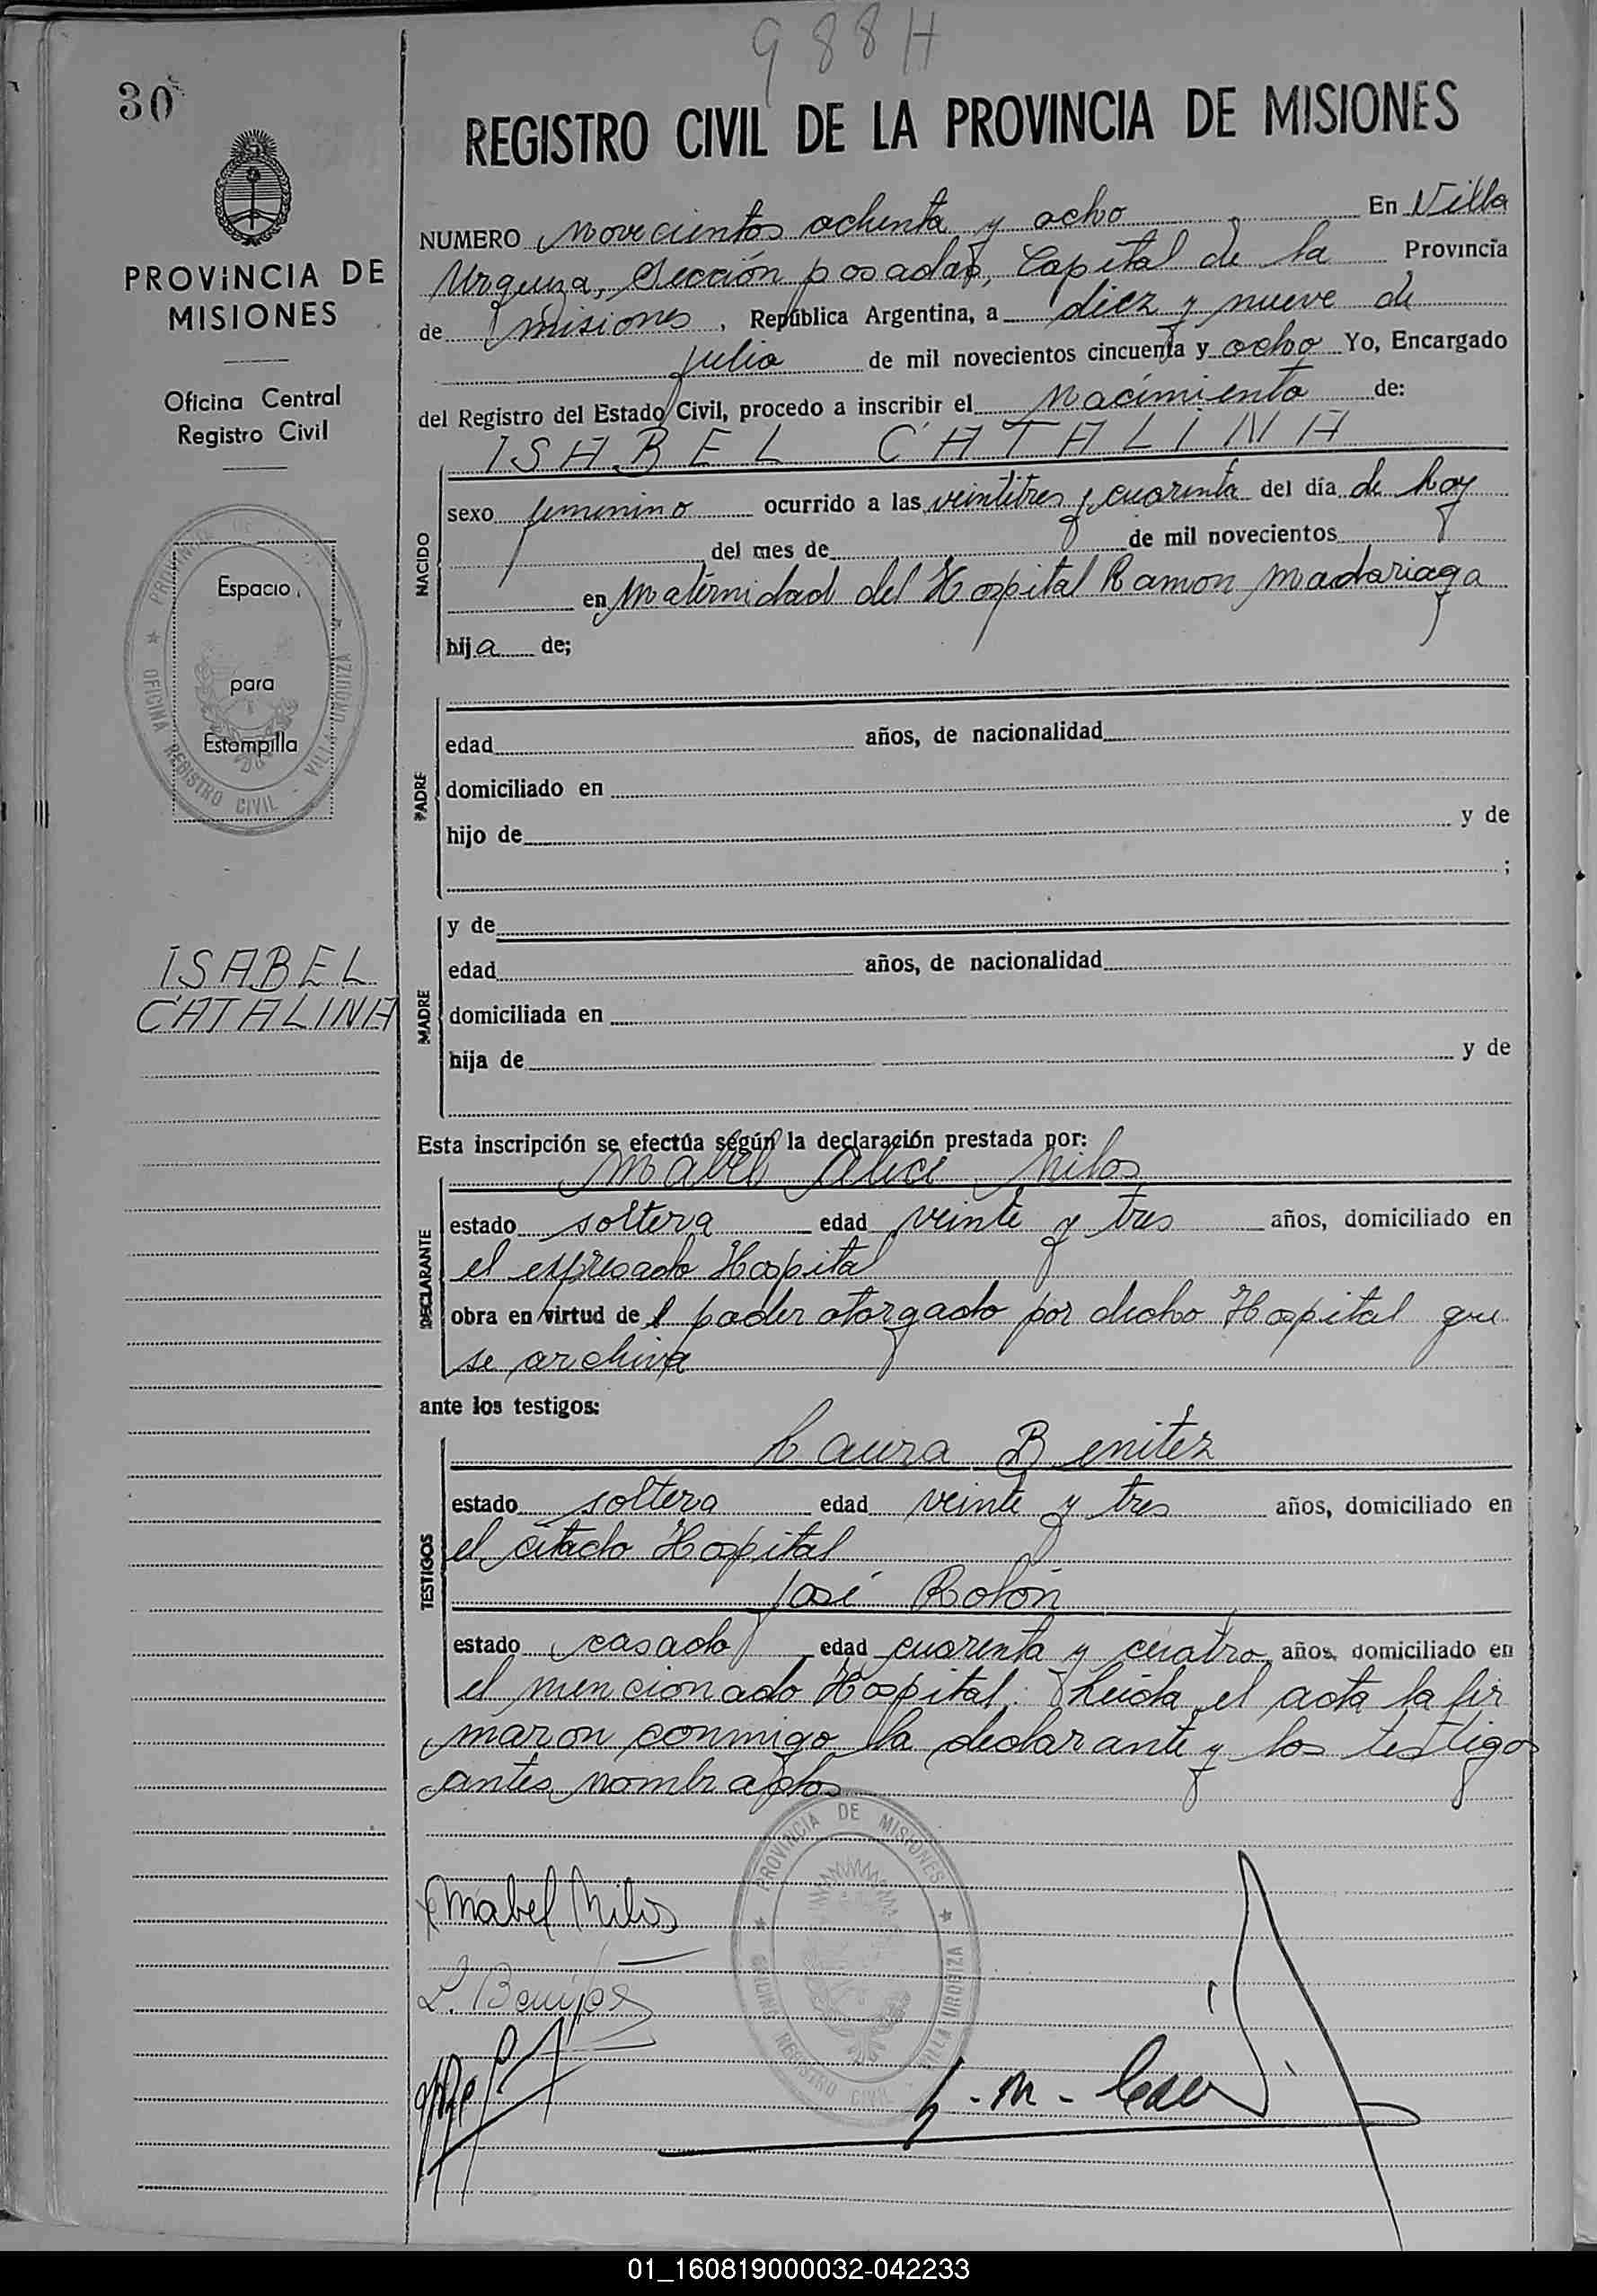 988H
30
REGISTRO CIVIL DE LA PROVINCIA DE MISIONES
PROVINCIA DE
MISIONES
Oficina Central
Registro Civil
NUMERO Novecientos ochenta y ocho En Villa
Urquiza, Sección posadas, Capital de la Provincia
de misiones, República Argentina, a diez y nueve de
julio de mil novecientos cincuenta y ocho Yo, Encargado
del Registro del Estado Civil, procedo a inscribir el Nacimiento de:
ISABEL CATALINA
NACIDO
sexo femenino ocurrido a las veintitres y cuarenta del día de hoy
del mes de de mil novecientos
en Maternidad del Hospital Ramon Madariaga
hija de;
PROVINCIA DE
OFICINA REGISTRO CIVIL - VILLA URQUIZA
Espacio
para
Estampilla
PADRE
edad años, de nacionalidad
domiciliado en
hijo de y de
;
ISABEL
CATALINA
MADRE
y de
edad años, de nacionalidad
domiciliada en
hija de y de
Esta inscripción se efectúa según la declaración prestada por:
Mabel Alice Milos
DECLARANTE
estado soltera edad veinte y tres años, domiciliado en
el expresado Hospital
obra en virtud de l poder otorgado por dicho Hospital que
se archiva
ante los testigos:
Laura Benitez
TESTIGOS
estado soltera edad veinte y tres años, domiciliado en
el citado Hospital
José Rolón
estado casado edad cuarenta y cuatro años, domiciliado en
el mencionado Hospital. Leida el acta la fir
maron conmigo la declarante y los testigos
antes nombrados
PROVINCIA DE MISIONES
OFICINA REGISTRO CIVIL - VILLA URQUIZA
Mabel Milos
L. Benitez
01_160819000032-042233